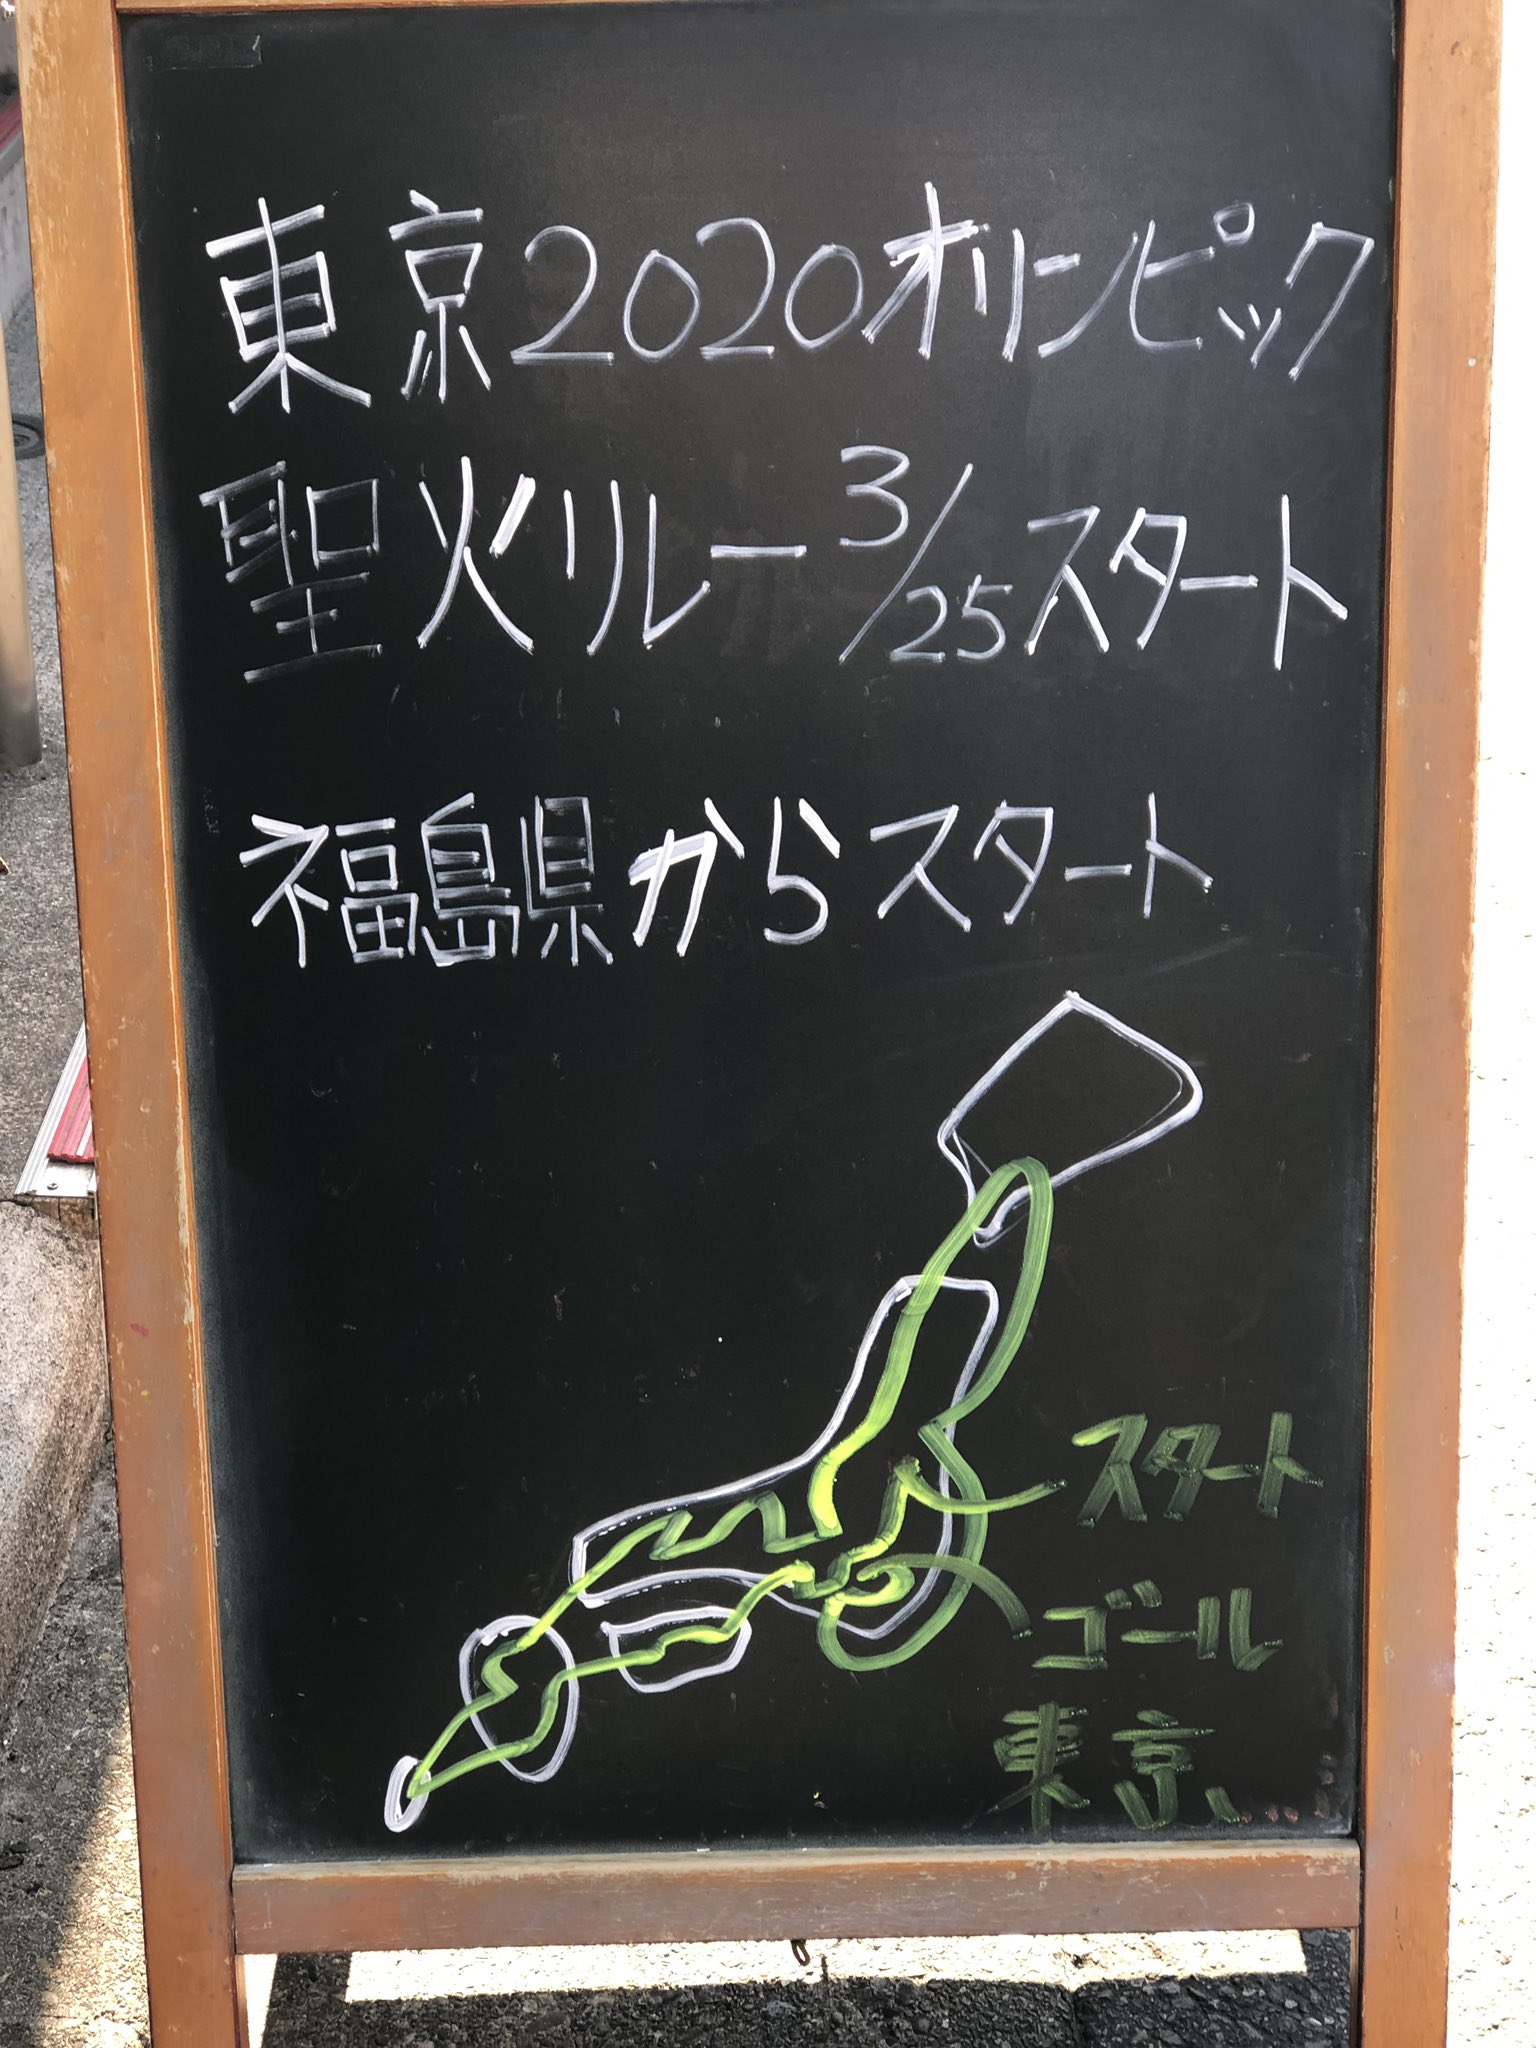 東京2020オリンピック
聖火リレー3/25スタート
福島県からスタート
スタート
ゴール
東京